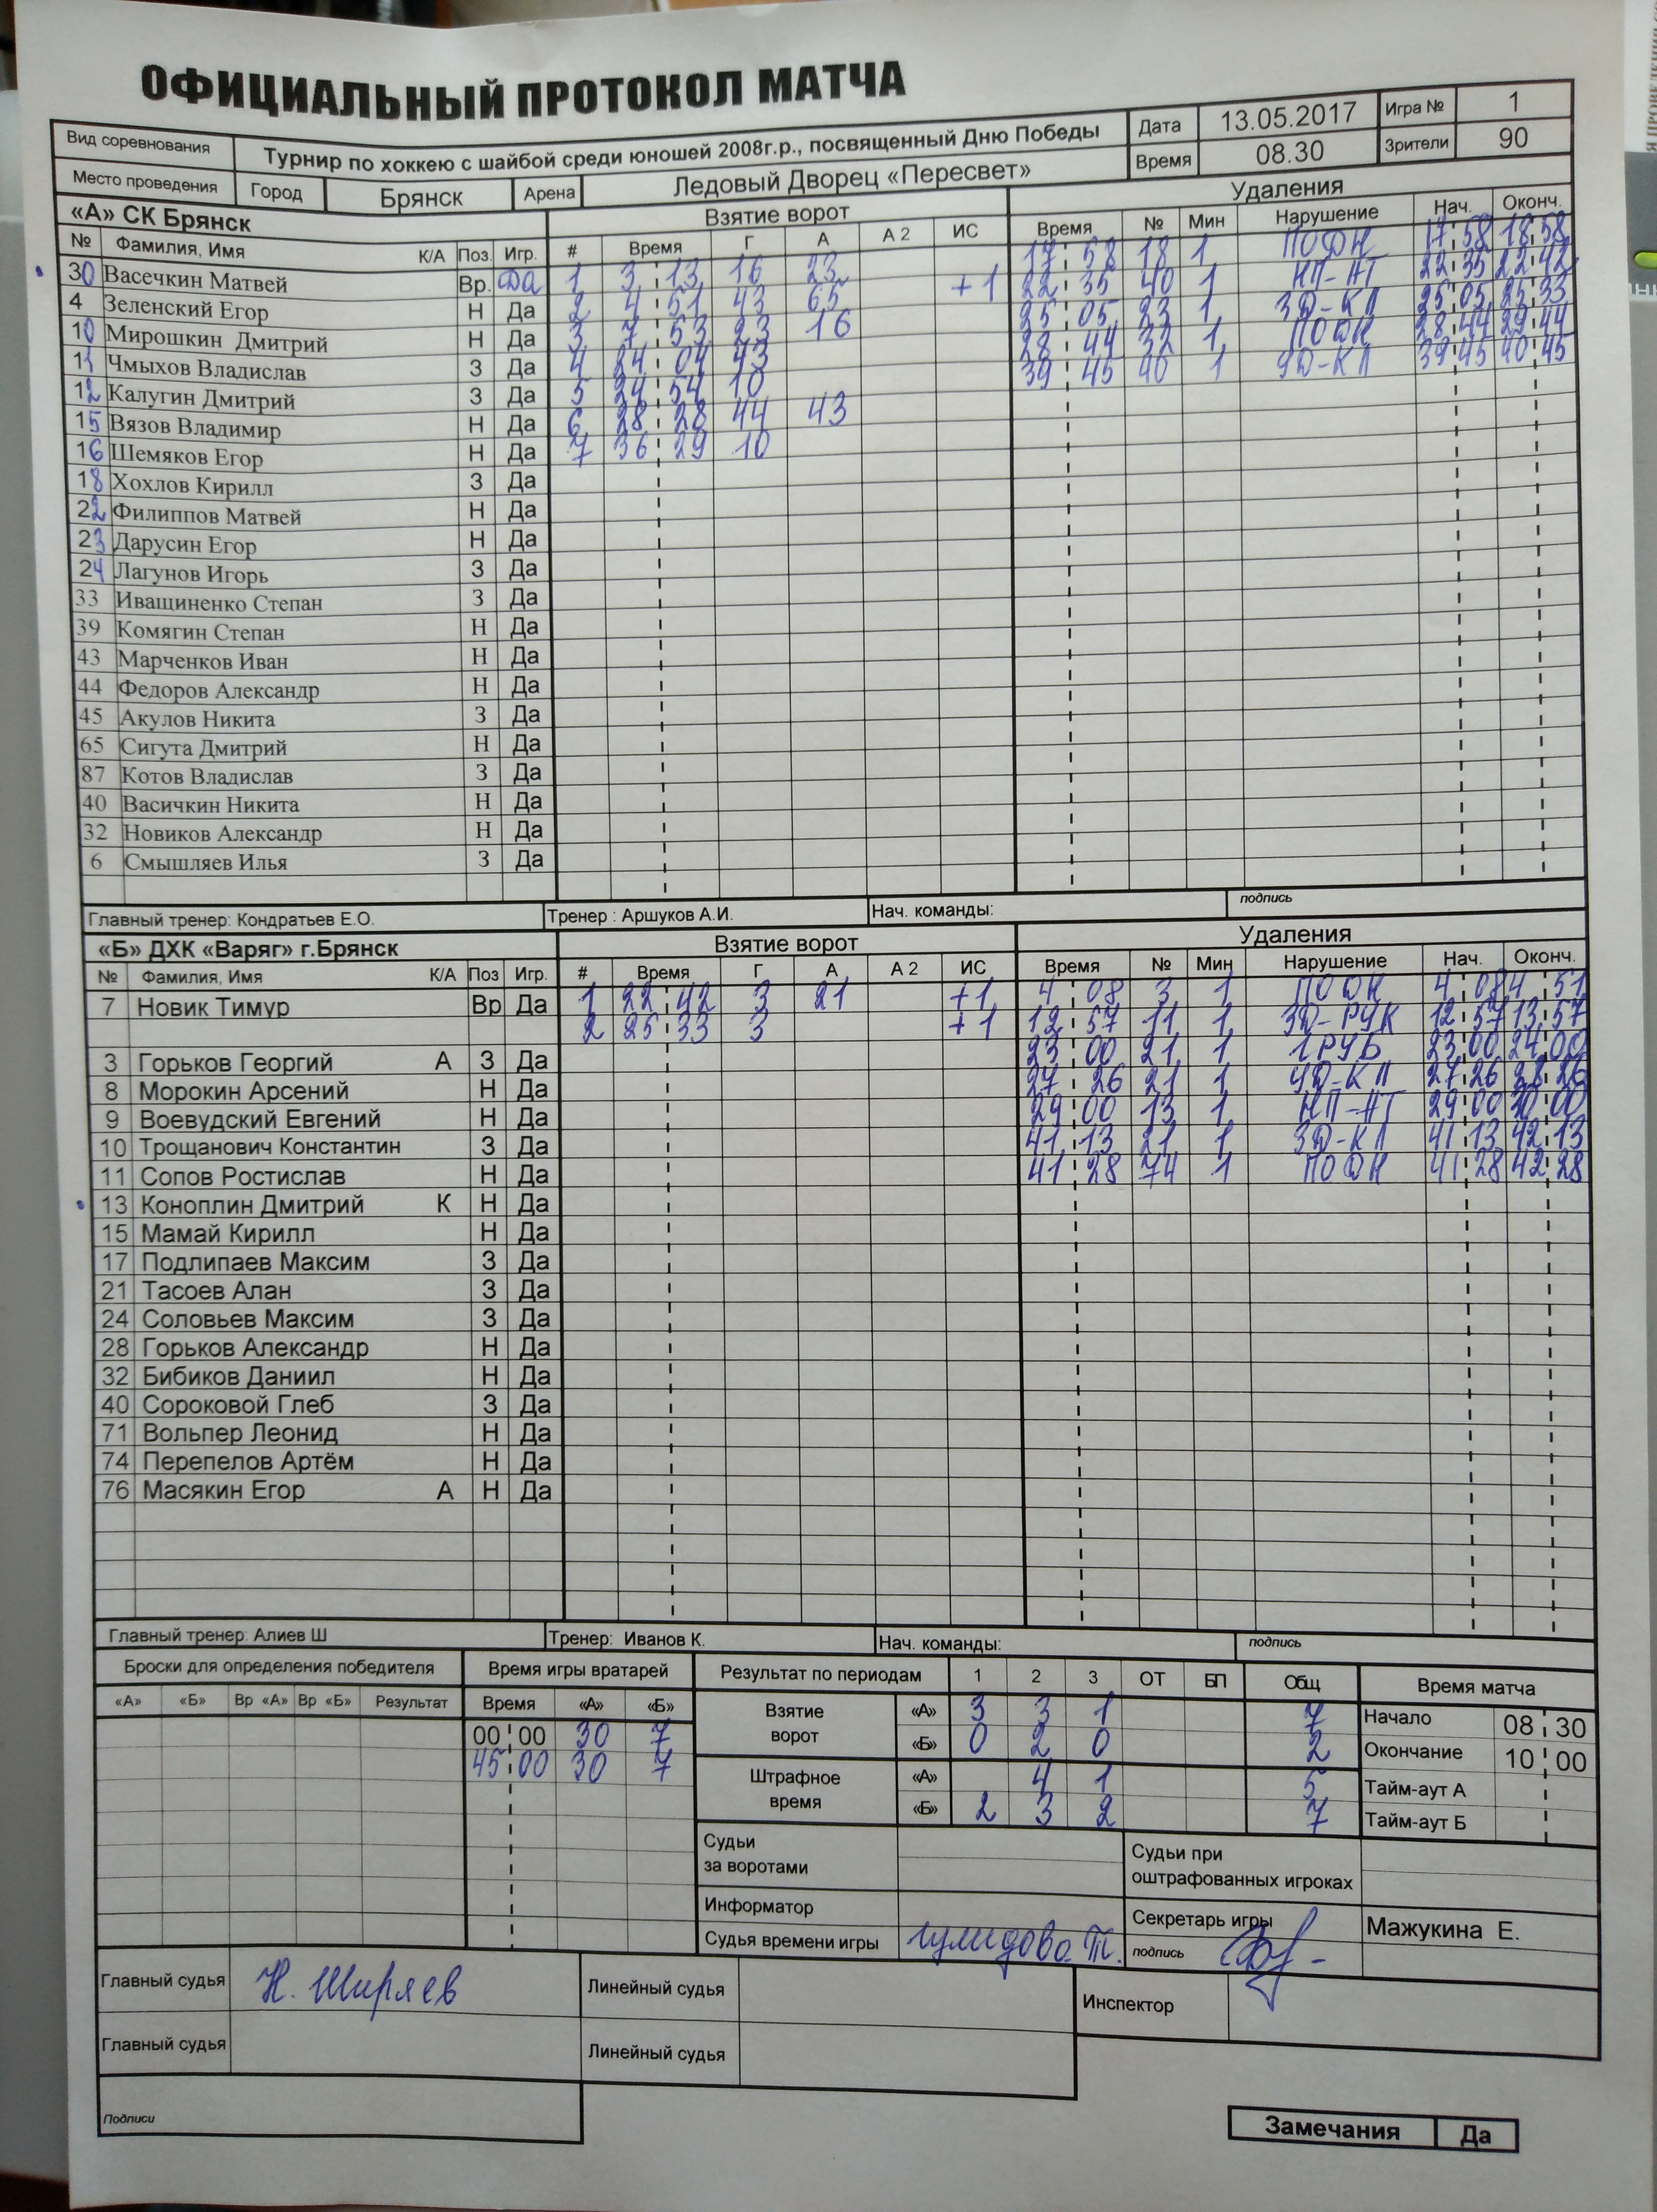 ОФИЦИАЛЬНЫЙ ПРОТОКОЛ МАТЧА
Вид соревнования Турнир по хоккею с шайбой среди юношей 2008г.р., посвященный Дню Победы Дата 13.05.2017 Игра № 1
Место проведения Город Брянск Арена Ледовый Дворец «Пересвет» Время 08.30 Зрители 90
«А» СК Брянск Взятие ворот Удаления
№ Фамилия, Имя К/А Поз. Игр. # Время Г А А 2 ИС Время № Мин Нарушение Нач. Оконч.
30 Васечкин Матвей Вр. Да 1 3 13 16 23 +1 17 58 18 1 ПОДН 17 58 18 58
4 Зеленский Егор Н Да 2 4 51 43 65 22 35 40 1 НП-АТ 22 35 22 42
10 Мирошкин Дмитрий Н Да 3 7 53 23 16 25 05 23 1 ЗД-КЛ 25 05 25 33
11 Чмыхов Владислав З Да 4 24 04 43 28 44 32 1 ПОДН 28 44 29 44
12 Калугин Дмитрий З Да 5 24 54 10 39 45 40 1 УД-КЛ 39 45 40 45
15 Вязов Владимир Н Да 6 28 28 44 43
16 Шемяков Егор Н Да 7 36 29 10
18 Хохлов Кирилл З Да
22 Филиппов Матвей Н Да
23 Дарусин Егор Н Да
24 Лагунов Игорь З Да
33 Иващиненко Степан З Да
39 Комягин Степан Н Да
43 Марченков Иван Н Да
44 Федоров Александр Н Да
45 Акулов Никита З Да
65 Сигута Дмитрий Н Да
87 Котов Владислав З Да
40 Васичкин Никита Н Да
32 Новиков Александр Н Да
6 Смышляев Илья З Да
Главный тренер: Кондратьев Е.О. Тренер : Аршуков А.И. Нач. команды: подпись
«Б» ДХК «Варяг» г.Брянск Взятие ворот Удаления
№ Фамилия, Имя К/А Поз Игр. # Время Г А А 2 ИС Время № Мин Нарушение Нач. Оконч.
7 Новик Тимур Вр Да 1 22 42 3 21 +1 4 08 3 1 ПОДН 4 08 4 51
2 25 33 3 +1 12 57 11 1 ЗД-РУК 12 57 13 57
3 Горьков Георгий А З Да 23 00 21 1 ГРУБ 23 00 24 00
8 Морокин Арсений Н Да 27 26 21 1 УД-КЛ 27 26 28 26
9 Воевудский Евгений Н Да 29 00 13 1 НП-АТ 29 00 30 00
10 Трощанович Константин З Да 41 13 21 1 ЗД-КЛ 41 13 42 13
11 Сопов Ростислав Н Да 41 28 74 1 ПОДН 41 28 42 28
13 Коноплин Дмитрий К Н Да
15 Мамай Кирилл Н Да
17 Подлипаев Максим З Да
21 Тасоев Алан З Да
24 Соловьев Максим З Да
28 Горьков Александр Н Да
32 Бибиков Даниил Н Да
40 Сороковой Глеб З Да
71 Вольпер Леонид Н Да
74 Перепелов Артём Н Да
76 Масякин Егор А Н Да
Главный тренер: Алиев Ш Тренер: Иванов К. Нач. команды: подпись
Броски для определения победителя Время игры вратарей Результат по периодам 1 2 3 ОТ БП Общ Время матча
«А» «Б» Вр «А» Вр «Б» Результат Время «А» «Б» Взятие ворот «А» 3 3 1 7 Начало 08 30
00 00 30 7 «Б» 0 2 0 2 Окончание 10 00
45 00 30 7 Штрафное время «А» 4 1 5 Тайм-аут А
«Б» 2 3 2 7 Тайм-аут Б
Судьи за воротами Судьи при оштрафованных игроках
Информатор Секретарь игры Мажукина Е.
Судья времени игры Гулидова Т. подпись
Главный судья Н. Ширяев Линейный судья Инспектор
Главный судья Линейный судья
Подписи
Замечания Да